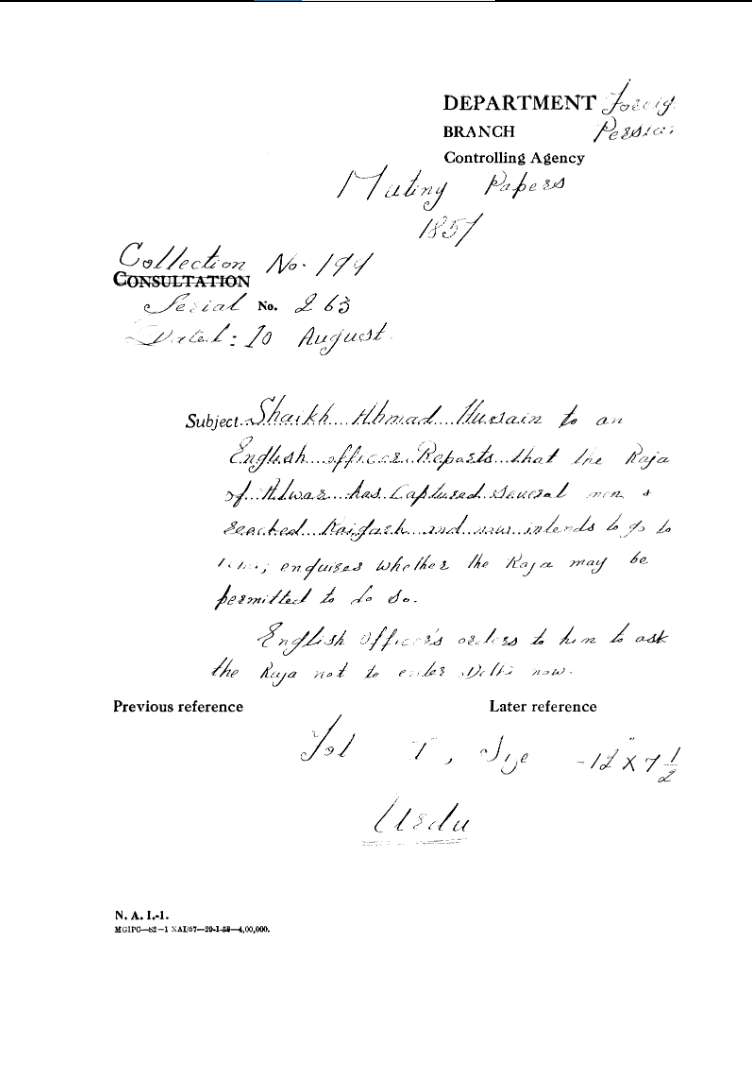 DEPARTMENT Foreig
BRANCH Persian
Controlling Agency
Mutiny Papers
1857
Collection No. 194
CONSULTATION
Serial No. 263
Dated: 10 August.
Subject Shaikh Ahmad Hussain to an
English officer. Reports that the Raja
of Alwar has captured several men &
reached Raigarh and now intends to go to
; enquires whether the Raja may be
permitted to do so.
English Officer's orders to him to ask
the Raja not to enter Delhi now.
Previous reference Later reference
Fol 1, Size -12" X 7 1/2
Urdu
N. A. I.-1.
MGIPC—82—1 NAI/57—29-1-58—4,00,000.